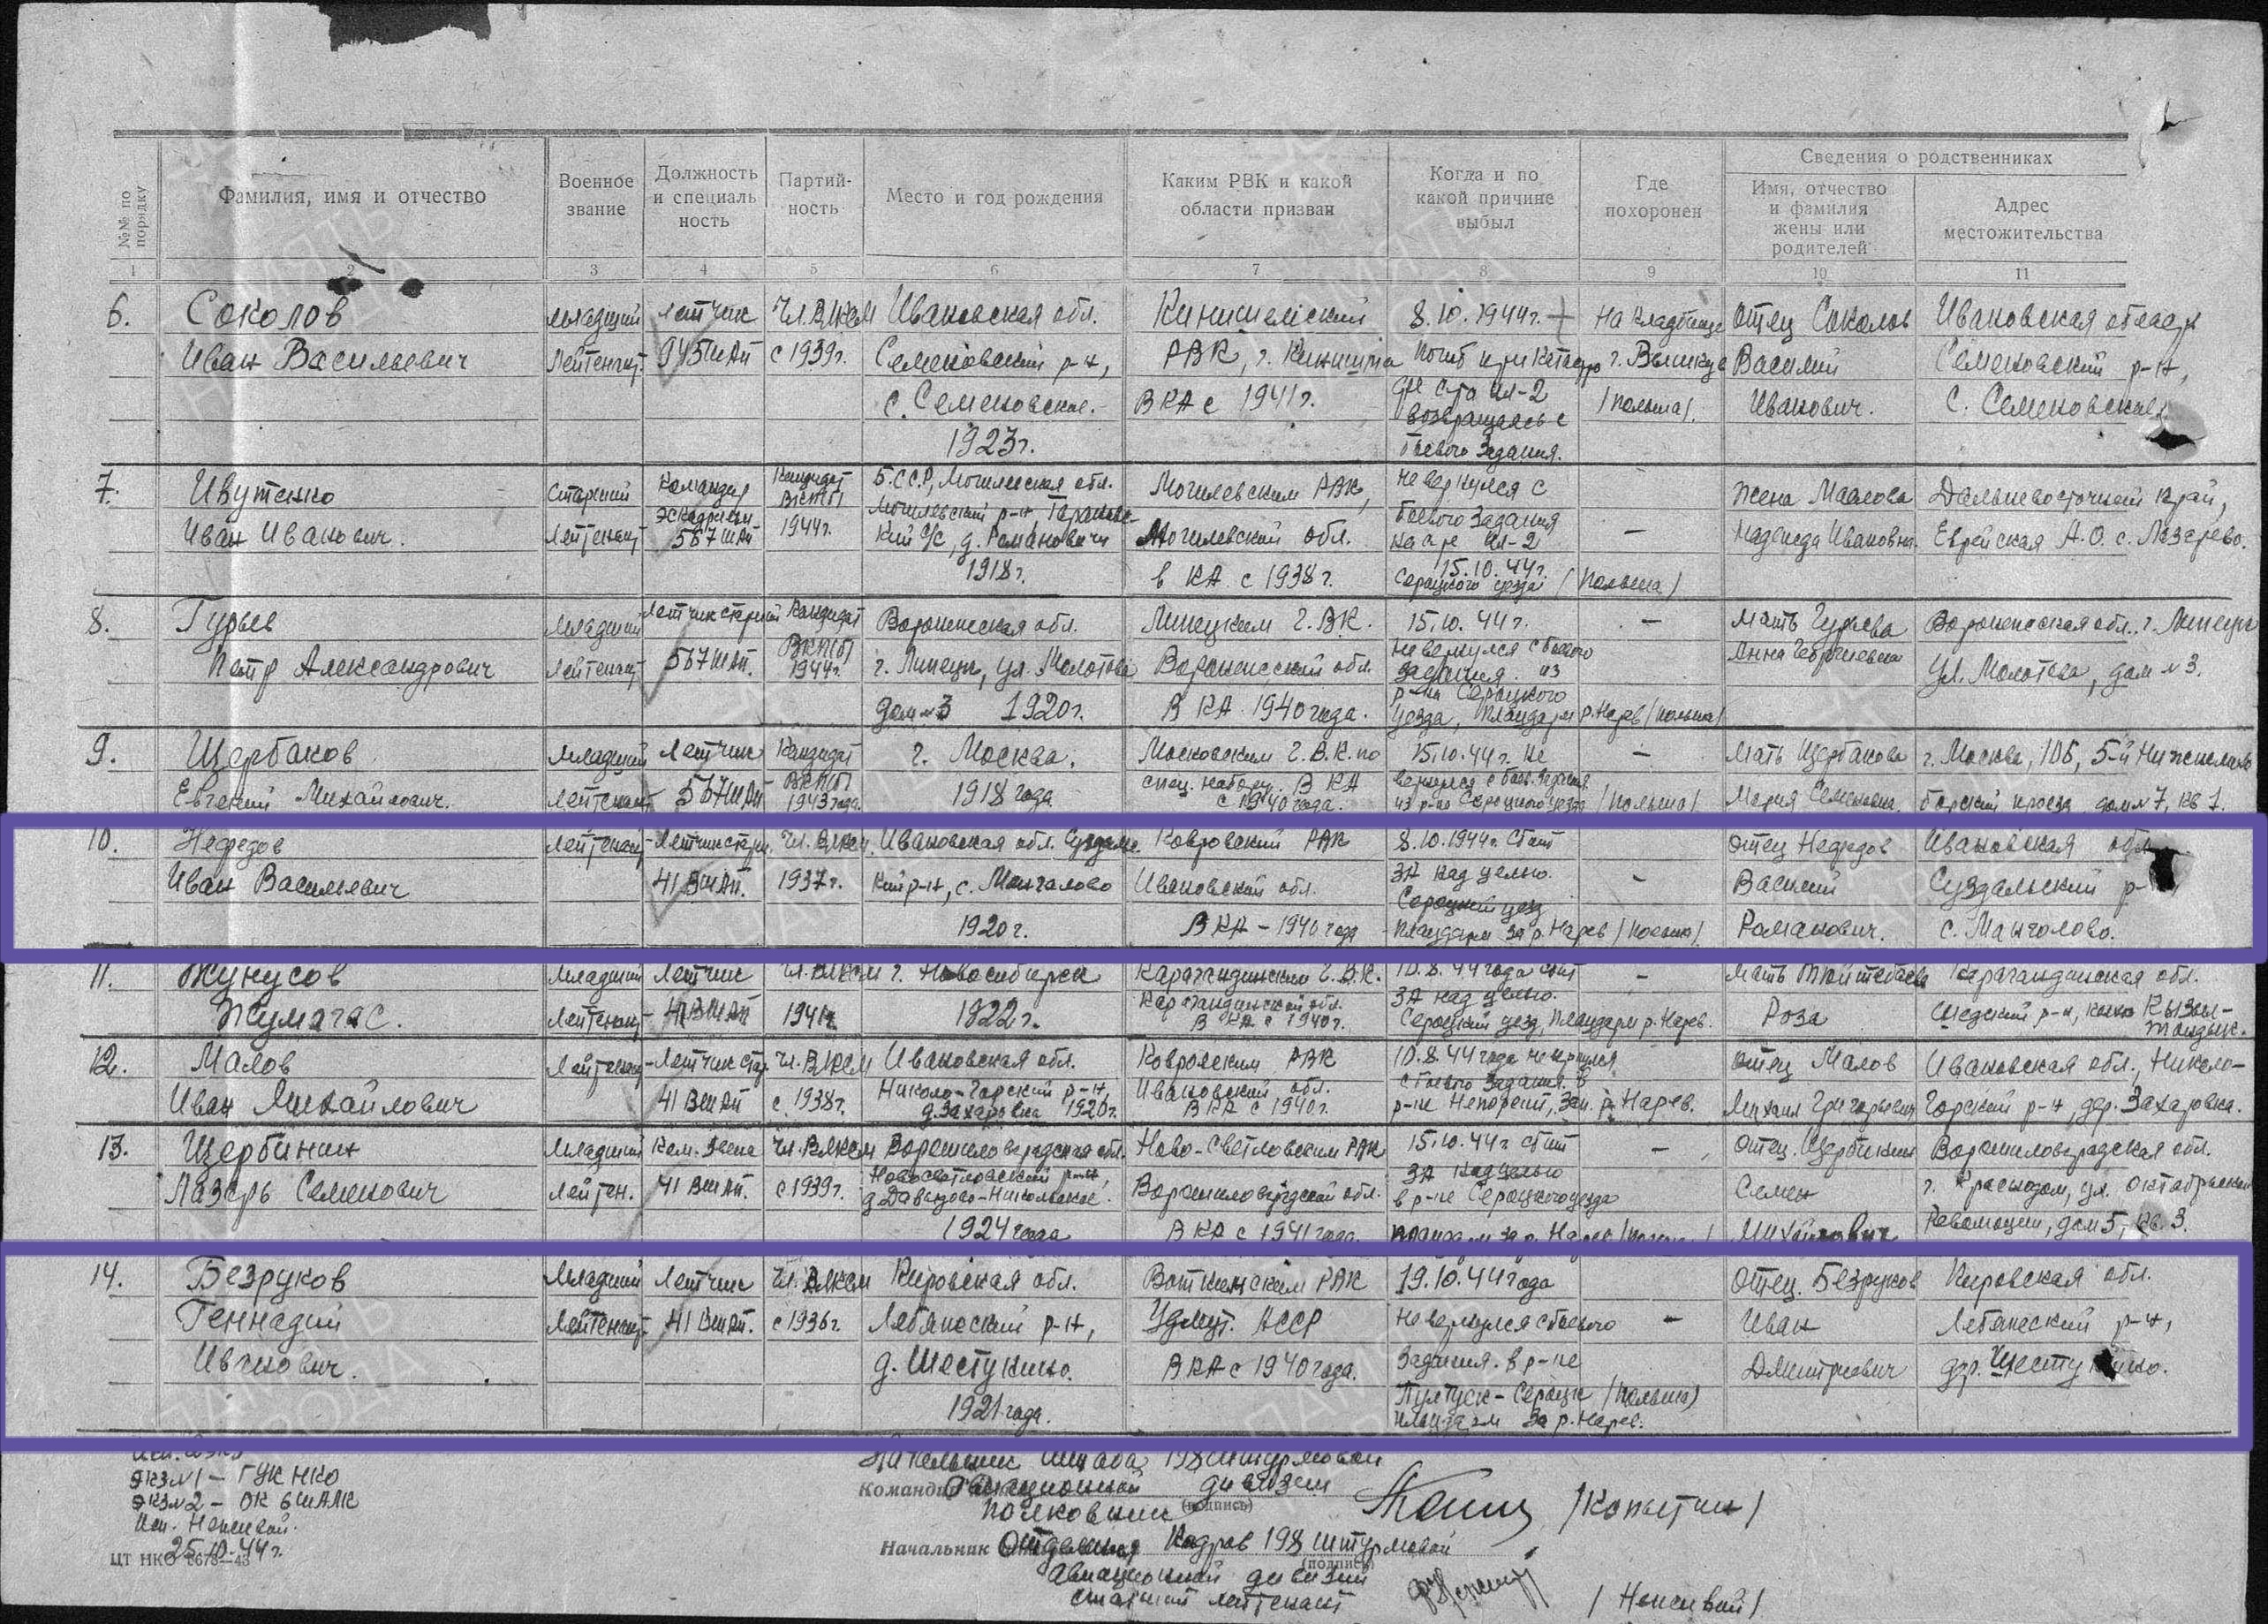 №№ по порядку
Фамилия, имя и отчество
Военное звание
Должность и специаль ность
Партий- ность
Место и год рождения
Каким РВК и какой области призван
Когда и по какой причине выбыл
Где похоронен
Сведения о родственниках
Имя, отчество и фамилия жены или родителей
Адрес местожительства
1 2 3 4 5 6 7 8 9 10 11
6. Соколов младший летчик чл.ВЛКСМ Ивановская обл. Кинишемский 8.10.1944г. на кладбище отец Соколов Ивановская область
Иван Васильевич лейтенант 945 ШАП с 1939г. Семеновский р-н, РВК, г. Кинишма погиб при катастро г. Вышкув Василий Семеновский р-н,
с. Семеновское. В КА с 1941г. фе с-та Ил-2 /польша/. Иванович. с. Семеновское
возвращаясь с
1923г. боевого задания.
7. Ивутенко старший командир кандидат БССР, Могилевская обл. Могилевским РВК, не вернулся с жена Маслова Дальневосточный край,
Иван Иванович. лейтенант эскадрильи 567 ШАП ВКП/б/ 1944г. Могилевский р-н кий с/с, д. Романовичи Могилевской обл. боевого задания на с-те Ил-2 — Надежда Ивановна. Еврейская А.О. с. Лазарево.
1918г. в КА с 1938г. 15.10.44г. Сероцкого уезда /Польша/
8. Гурьев младший летчик старший кандидат Воронежская обл. Липецким Г.ВК. 15.10.44г. — мать Гурьева Воронежская обл. г. Липецк
Петр Александрович лейтенант 567 ШАП. ВКП/б/ 1944г. г. Липецк, ул. Молотова Воронежской обл. не вернулся с боевого задания из Анна Георгиевна ул. Молотова, дом № 3.
дом № 3 1920г. В КА 1940 года. р-на Сероцкого уезда, плацдарм р. Нарев /польша/
9. Щербаков младший летчик кандидат г. Москва. Московским Г.В.К. по 15.10.44г. не — мать Щербакова г. Москва, 105, 5-й
Евгений Михайлович. лейтенант 567 ШАП ВКП/б/ 1943 года. 1918 года спец. набору. В КА с 1940 года. вернулся с боев. задания из р-на Сероцкого уезда /польша/ Мария Семеновна. проезд дом № 7, кв 1.
10. Нефедов лейтенант летчик старш. чл. ВЛКСМ. Ивановская обл. Суздальс Ковровский РВК 8.10.1944г. сбит — отец Нефедов Ивановская обл.
Иван Васильевич 41 ВШАП. 1937г. кий р-н, с. Мангалово Ивановской обл. ЗА над целью. — Василий Суздальский р-
Сероцкий уезд
1920г. В КА – 1940 года плацдарм за р. Нарев /польша/. Романович. с. Манголово.
11. Жунусов младший летчик чл. ВЛКСМ г. Новосибирск Карагандинским Г.В.К. 10.8.44 года сбит — мать Карагандинская обл.
Жумагас. лейтенант 41 ВШАП 1941г. 1922г. Карагандинской обл. В КА с 1940г. ЗА над целью. Сероцкий уезд, плацдарм р. Нарев. Роза р-н, колхоз Кызыл-
12. Малов лейтенант летчик стар. чл. ВЛКСМ Ивановская обл. Ковровским РВК 10.8.44 года не вернулся отец Малов Ивановская обл., Николо-
Иван Михайлович 41 ВШАП с 1938г. Николо-Горский р-н, д. Захаровка 1920г. Ивановской обл. В КА с 1940г. с боевого задания. В р-не Непорент, зап. р. Нарев. Михаил Григорьевич Горский р-н, дер. Захаровка.
13. Щербинин младший ком. звена чл. ВЛКСМ Ворошиловградская обл. Ново-Светловским РВК 15.10.44г сбит — отец. Щербинин Ворошиловградская обл.
Лазарь Семенович лейтен. 41 ВШАП. с 1939г. Новосветловский р-н, д. Давыдово-Никольское. Ворошиловградской обл. ЗА над целью в р-не Сероцкого уезда Семен г. Краснодон, ул. Октябрьской
1924 года В КА с 1941 года. плацдарм за р. Нарев /польша/ Михайлович Революции, дом 5, кв. 3.
14. Безруков младший летчик чл. ВЛКСМ Кировская обл. Воткинским РВК 19.10.44 года отец. Безруков Кировская обл.
Геннадий лейтенант 41 ВШАП. с 1936г. Лебяжский р-н, Удмут. АССР не вернулся с боевого — Иван Лебяжский р-н,
Иванович. д. Шестукино. В КА с 1940 года. задания. в р-не Дмитриевич дер. Шесту
1921 года. Пултуск – Сероцк /польша/
плацдарм за р. Нарев.
Начальник штаба 198 штурмовой
Командир авиационной дивизии
полковник (подпись) /Копытин/
Начальник отделения кадров 198 штурмовой
(подпись)
авиационной дивизии
старший лейтенант
экз №1 – ГУК НКО
экз №2 – ОК 6 ШАК
25.10.44г.
ЦТ НКО 8673–43